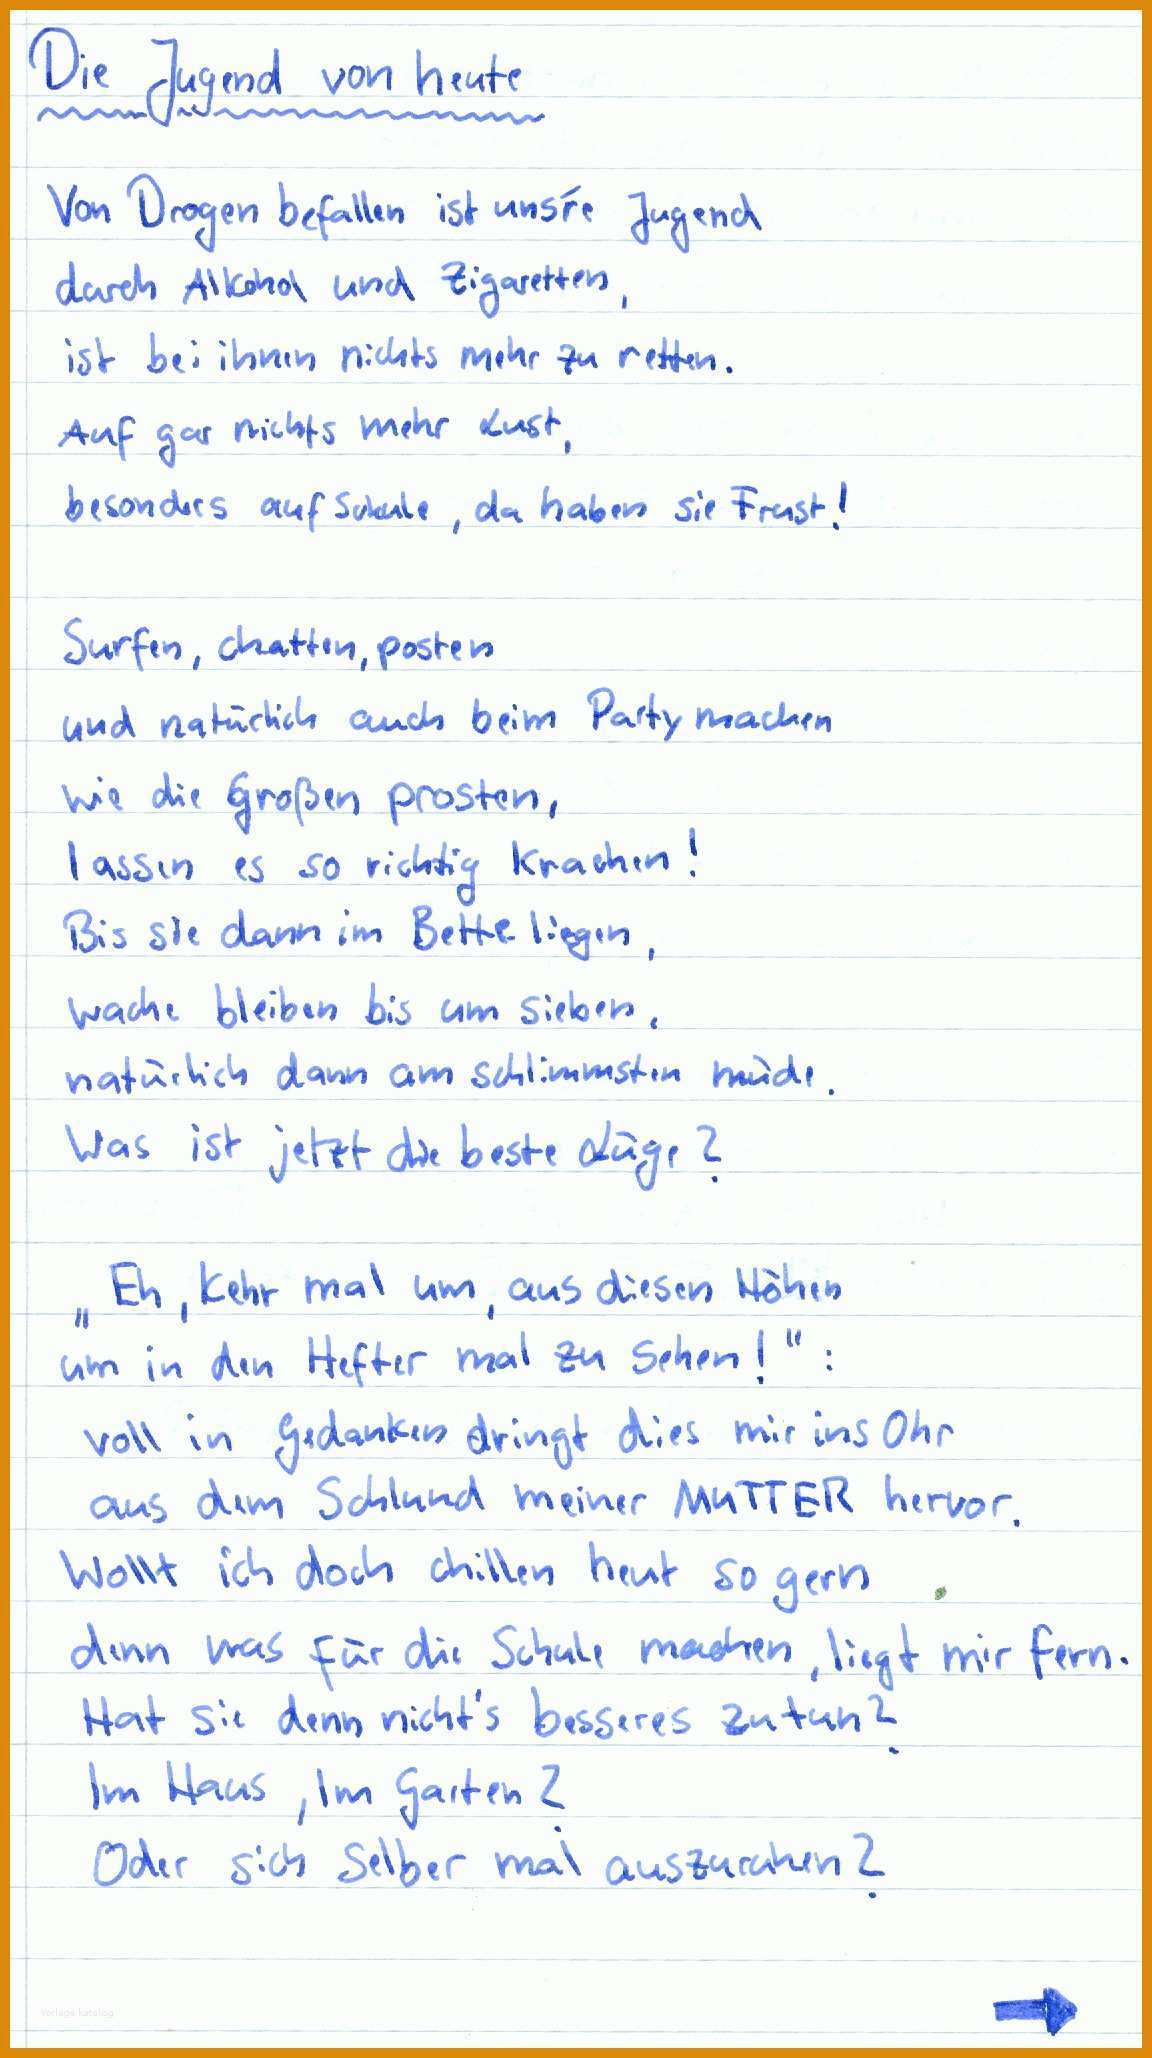 Die Jugend von heute
Von Drogen befallen ist uns're Jugend
durch Alkohol und Zigaretten,
ist bei ihnen nichts mehr zu retten.
Auf gar nichts mehr Lust,
besonders auf Schule, da haben sie Frust!
Surfen, chatten, posten
und natürlich auch beim Party machen
wie die Großen prosten,
lassen es so richtig krachen!
Bis sie dann im Bette liegen,
wache bleiben bis um sieben,
natürlich dann am schlimmsten müde.
Was ist jetzt die beste Lüge?
„Eh, kehr mal um, aus diesen Höhen
um in den Hefter mal zu sehen!":
voll in Gedanken dringt dies mir ins Ohr
aus dem Schlund meiner MUTTER hervor.
Wollt ich doch chillen heut so gern
denn was für die Schule machen, liegt mir fern.
Hat sie denn nicht's besseres zutun?
Im Haus, Im Garten?
Oder sich selber mal auszuruhen?
Vorlage katalog